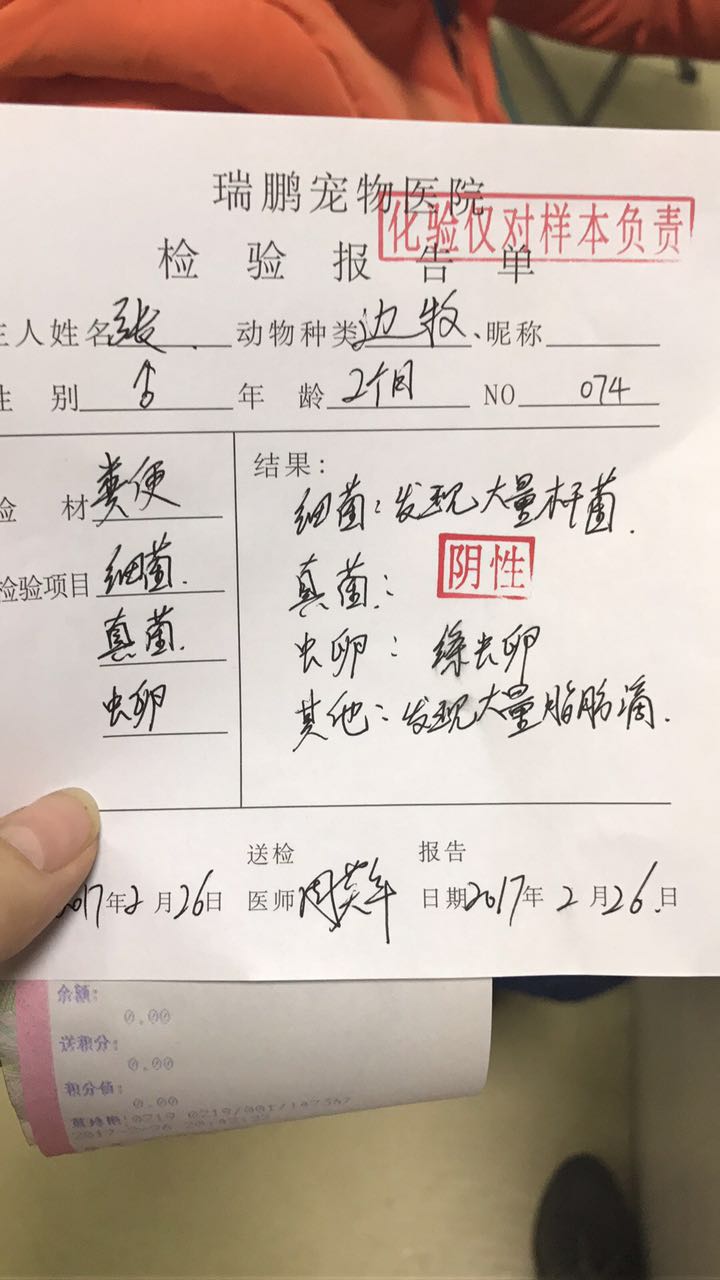 瑞鹏宠物医院
化验仅对样本负责
检验报告单
主人姓名 张 动物种类 边牧 昵称
性别 ♂ 年龄 2个月 NO 074
检材 粪便
检验项目 细菌
真菌
虫卵
结果:
细菌:发现大量杆菌.
真菌: 阴性
虫卵: 绦虫卵
其他:发现大量脂肪滴.
2017年2月26日
送检医师
报告日期 2017年2月26日
余额:
0.00
送积分:
0.00
积分值:
0.00